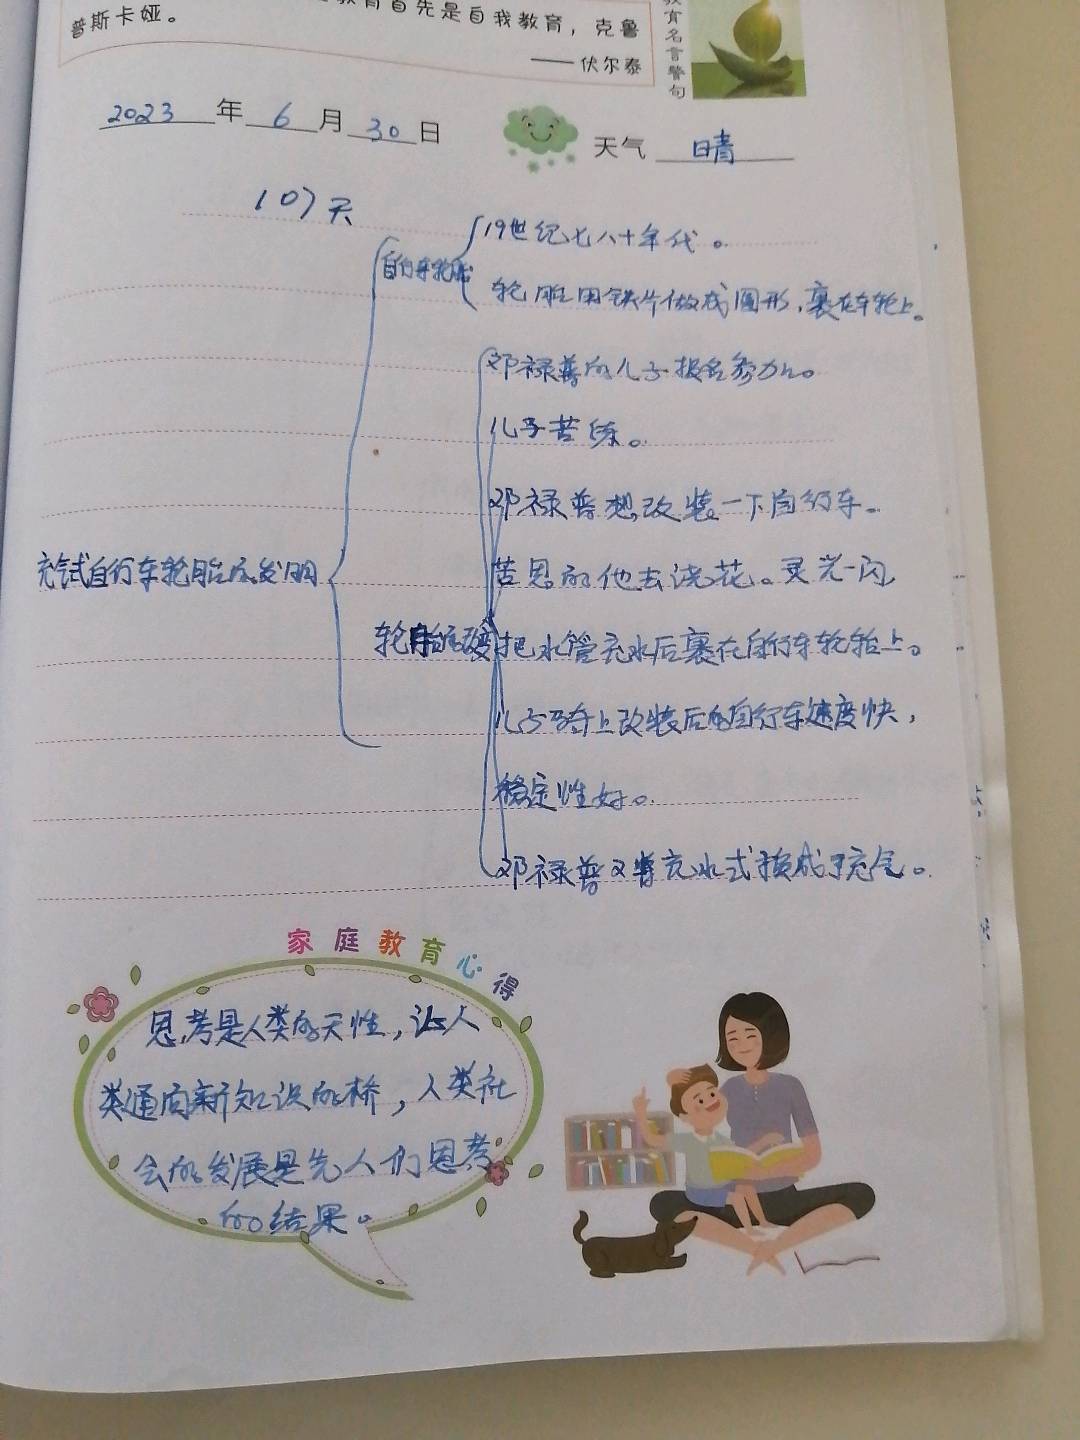 教育首先是自我教育，克鲁
普斯卡娅。
——伏尔泰
教育名言警句
2023年6月30日 天气 晴
107天
19世纪七八十年代。
自行车轮胎
轮胎用铁片做成圆形，裹在车轮上。
邓禄普的儿子报名参加。
儿子苦练。
邓禄普想改装一下自行车。
充气式自行车轮胎的发明
苦思的他去浇花。灵光一闪，
轮胎的改变
把水管充水后裹在自行车轮胎上。
儿子骑上改装后的自行车速度快，
稳定性好。
邓禄普又将充水式换成了充气。
家庭教育心得
思考是人类的天性，让人
类通向新知识的桥，人类社
会的发展是先人们思考
的结果。